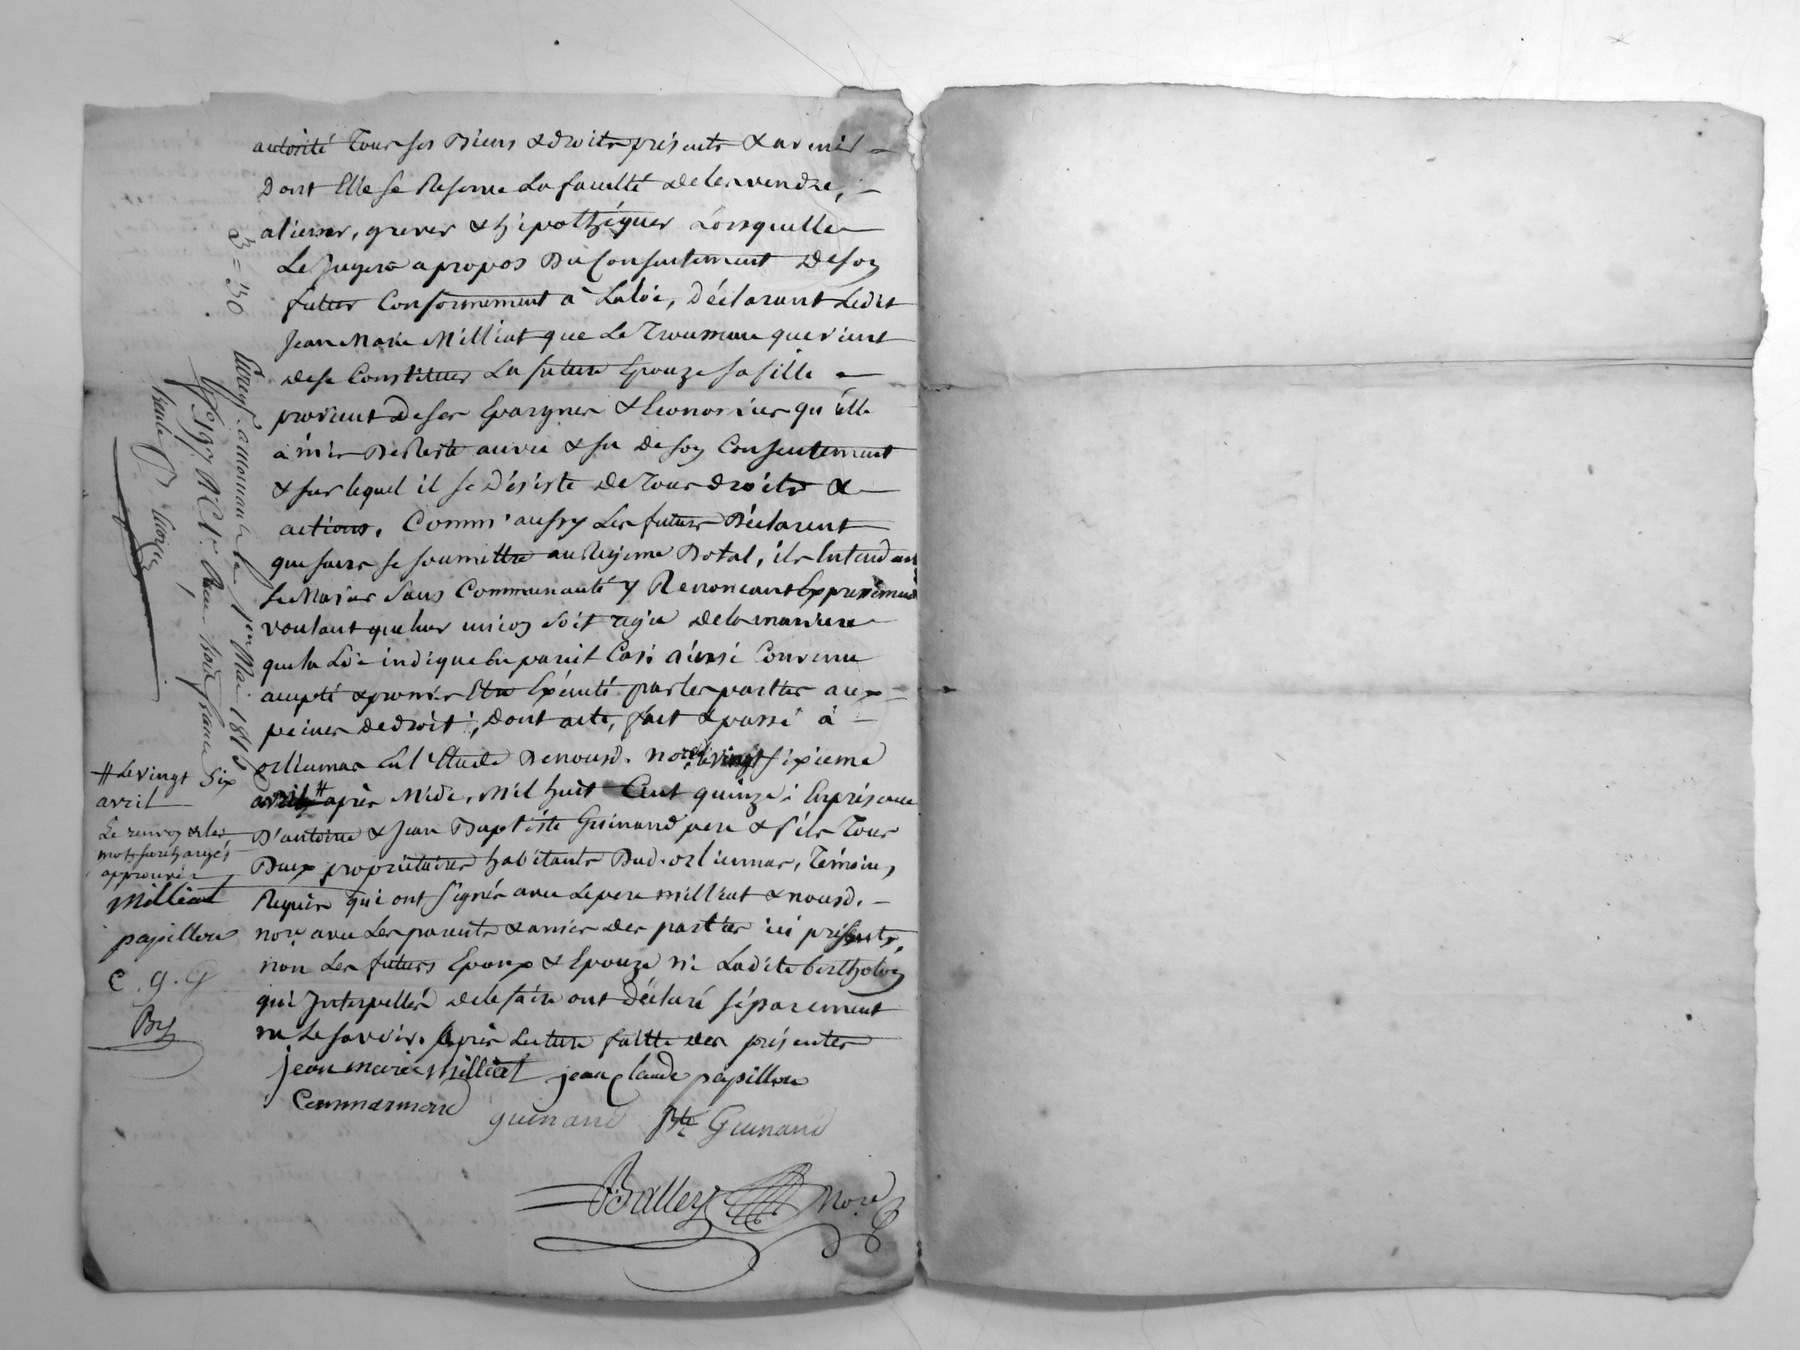 autorité Tous ses Biens & droits présents & avenir
Dont Elle se Reserve La faculté de les vendre,
aliener, grever & hipothéquer Lorsquelle
Le Jugera apropos Du Consentement De son
futur Conformement à La loi, Déclarant Ledit
Jean Marie Milliat que Le Trousseau que vient
de se Constituer La future Epouze sa fille
provient De ses Epargnes & Economies qu'elle
à mis De Reste au vu & su De son Consentement
& sur lequel il se Désiste De Tous droits &
actions. Comm'aussy Les futurs Déclarent
que sans se soumettre au Regime Dotal, ils Entendent
se Marier sans Communauté y Renoncant Expressement
voulant que leur union soit régie de la maniere
que la Loi indique En pareil Cas; ainsi Convenu
accepté & promis Etre Exécuté par les parties aux
peines de droit; Dont acte, fait & passé à
orlienas En l'Etude De nousd. nore. le vingt sixieme
avril # après Midi, Mil huit Cent quinze; En présence
D'antoine & Jean Baptiste Guinand pere & fils Tous
Deux propriétaires habitants Dud. orlienas, Témoins
Requis qui ont signés avec Le pere milliat & nousd.
nore. avec Les parents & amies des parties ici présents,
non Les futurs Epoux & Epouze ni Ladite bertholon
qui Interpellés de le faire ont déclaré séparement
ne Le savoir. Après Lecture faitte des présentes
jean marie milliat jean Claude papillon
guinand Bte Guinand
Balley Nore
# Le vingt six
avril
Le renvoy & les
mots surchargés
approuvés
Milliat
papillon
C. g. G
By
3 = 30